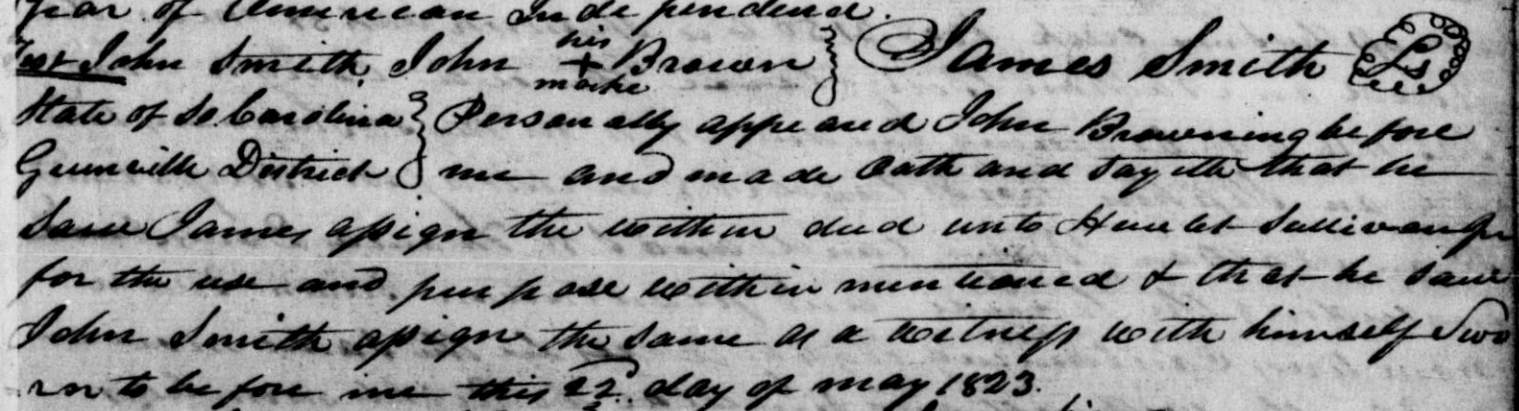 year of American Independend.
Test John Smith, John his + mark Brown } James Smith Ls
State of So. Carolina } Personally appeared John Browning before
Greenville District } me and made Oath and Sayeth that he
Saw James assign the within deed unto Hewlet Sullivan Jr
for the use and purpose within mentioned & that he saw
John Smith assign the same as a witness with himself Swo
rn to before me this 22 day of may 1823.